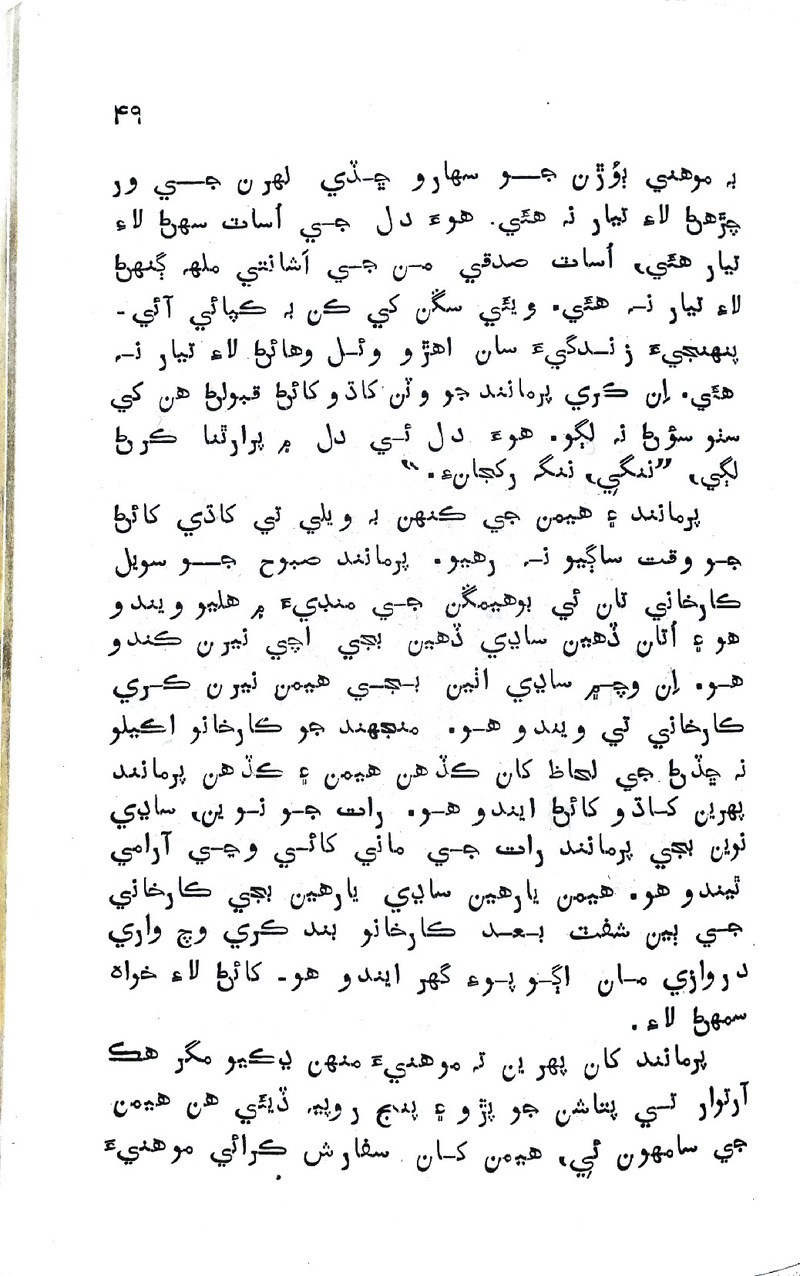 ۴۹
بہ موهني ٻُوڙن جو سهارو ڇڏي لهرن جي ور
چڙهڻ لاءِ تيار نہ هئي. هوءَ دل جي اُسات سهڻ لاءِ
تيار هئي، اُسات صدقي من جي اَشانتي ملهہ ڳنهڻ
لاءِ تيار نہ هئي. ويئي سگن کي ڪن بہ ڪپائي آئي-
پنهنجيءَ زندگيءَ سان اهڙو وئل وهائڻ لاءِ تيار نہ
هئي. اِن ڪري پرمانند جو وٽن کاڌو کائڻ قبولڻ هن کي
سٺو سوُڻ نہ لڳو. هوءَ دل ئي دل ۾ پرارٿنا ڪرڻ
لڳي، ”ننگي، ننگہ رکجانءِ.“
پرمانند ۽ هيمن جي ڪنهن بہ ويلي تي کاڌي کائڻ
جو وقت ساڳيو نہ رهيو. پرمانند صبوح جو سويل
ڪارخاني تان ئي ٻوهيمگن جي منڊيءَ ۾ هليو ويندو
هو ۽ اُتان ڏهين ساڍي ڏهين بجي اچي نيرن ڪندو
هو. اِن وچ ۾ ساڍي اٺين بجي هيمن نيرن ڪري
ڪارخاني تي ويندو هو. منجهند جو ڪارخانو اڪيلو
نہ ڇڏڻ جي لحاظ کان ڪڏهن هيمن ۽ ڪڏهن پرمانند
پهرين کاڌو کائڻ ايندو هو. رات جو نوين، ساڍي
نوين بجي پرمانند رات جي ماني کائي وڃي آرامي
ٿيندو هو. هيمن يارهين ساڍي يارهين بجي ڪارخاني
جي ٻين شفٽ بعد ڪارخانو بند ڪري وچ واري
دروازي مان اڳو پوءِ گهر ايندو هو- کائڻ لاءِ خواه
سمهڻ لاءِ.
پرمانند کان پهرين تہ موهنيءَ منهن ڍڪيو مگر هڪ
آرتوار تي پتاشن جو پڙو ۽ پنج روپيہ ڏيئي هن هيمن
جي سامهون ئي، هيمن کان سفارش ڪرائي موهنيءَ